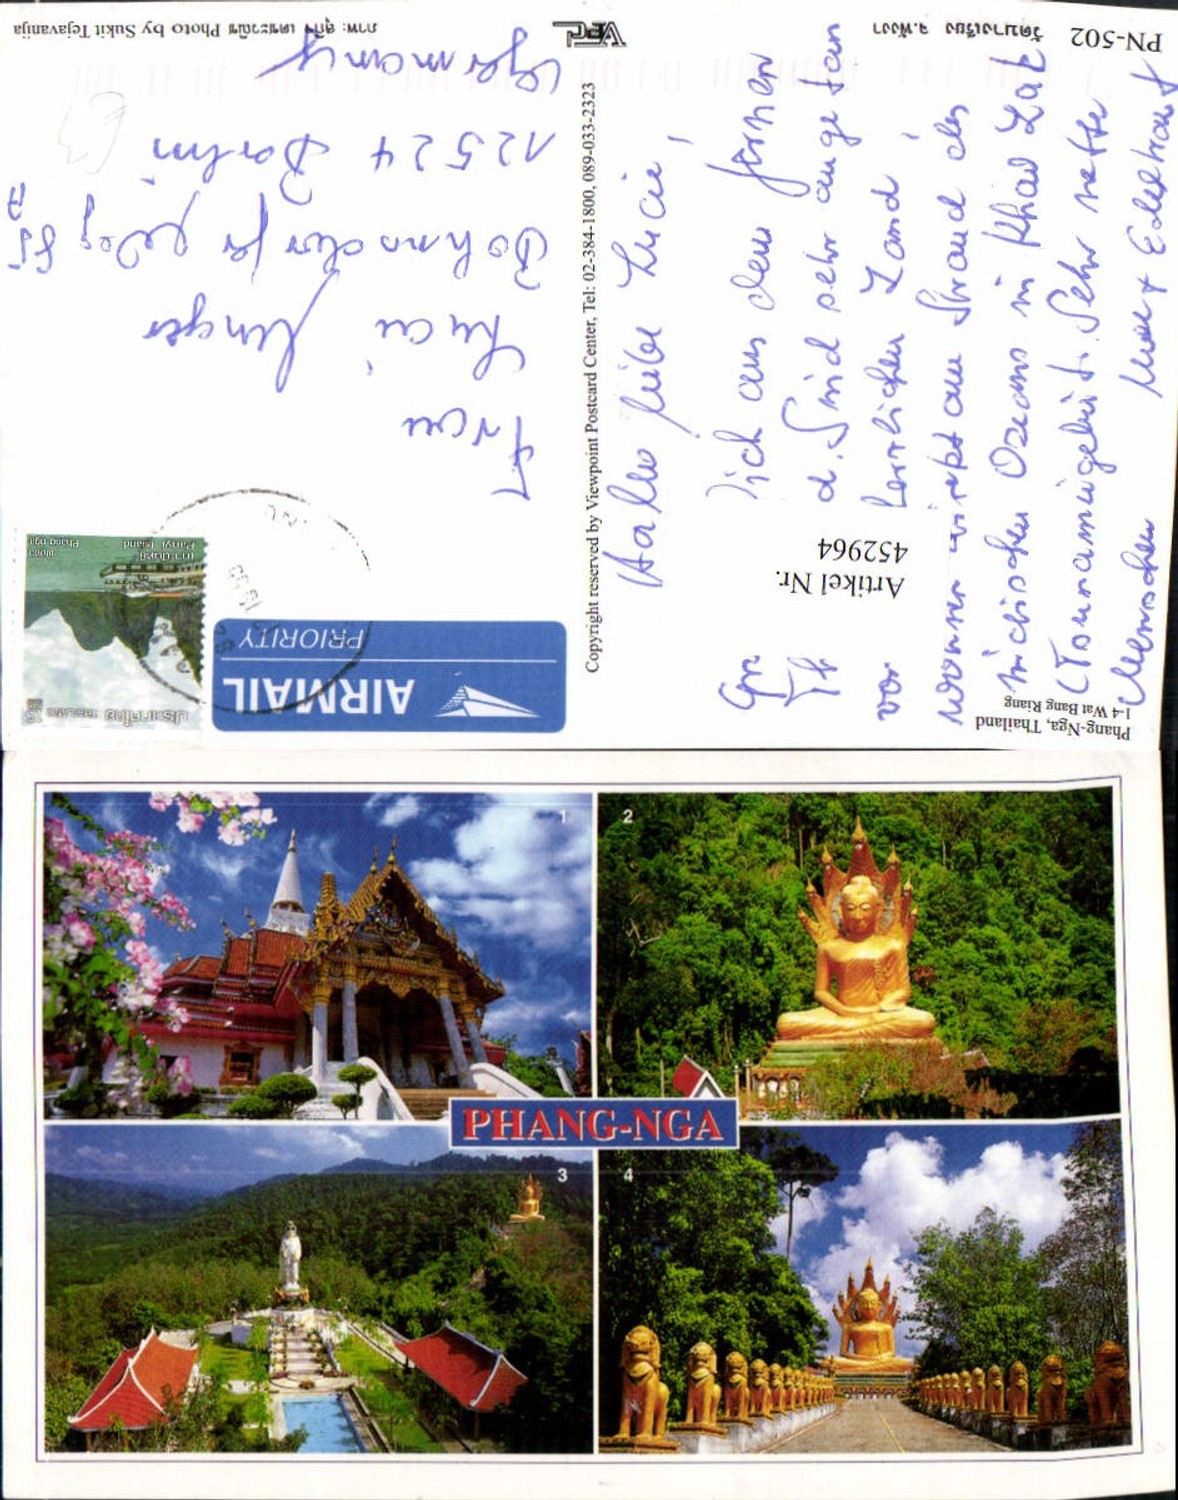 PN-502
วัดบางเรียง จ.พังงา
ภาพ: สุกิจ เตชะวณิช Photo by Sukit Tejavanija
VPC
Copyright reserved by Viewpoint Postcard Center, Tel: 02-384-1800, 089-033-2323
Phang-Nga, Thailand
1-4 Wat Bang Riang
Artikel Nr.
452964
AIRMAIL
PRIORITY
ประเทศไทย THAILAND
เกาะปันหยี
Panyi Island
พังงา
Phang nga
Hallo liebe Lucie!
aus dem fernen
Sind sehr angetan
von herrlichen Land!
wohnen direkt am Strand des
indischen Ozeans in Khao Lak
(Tsunamigebiet. Sehr nette
Menschen
Frau
Luci Unger
Dahmestr
12524 Berlin
Germany
1
2
3
4
PHANG-NGA